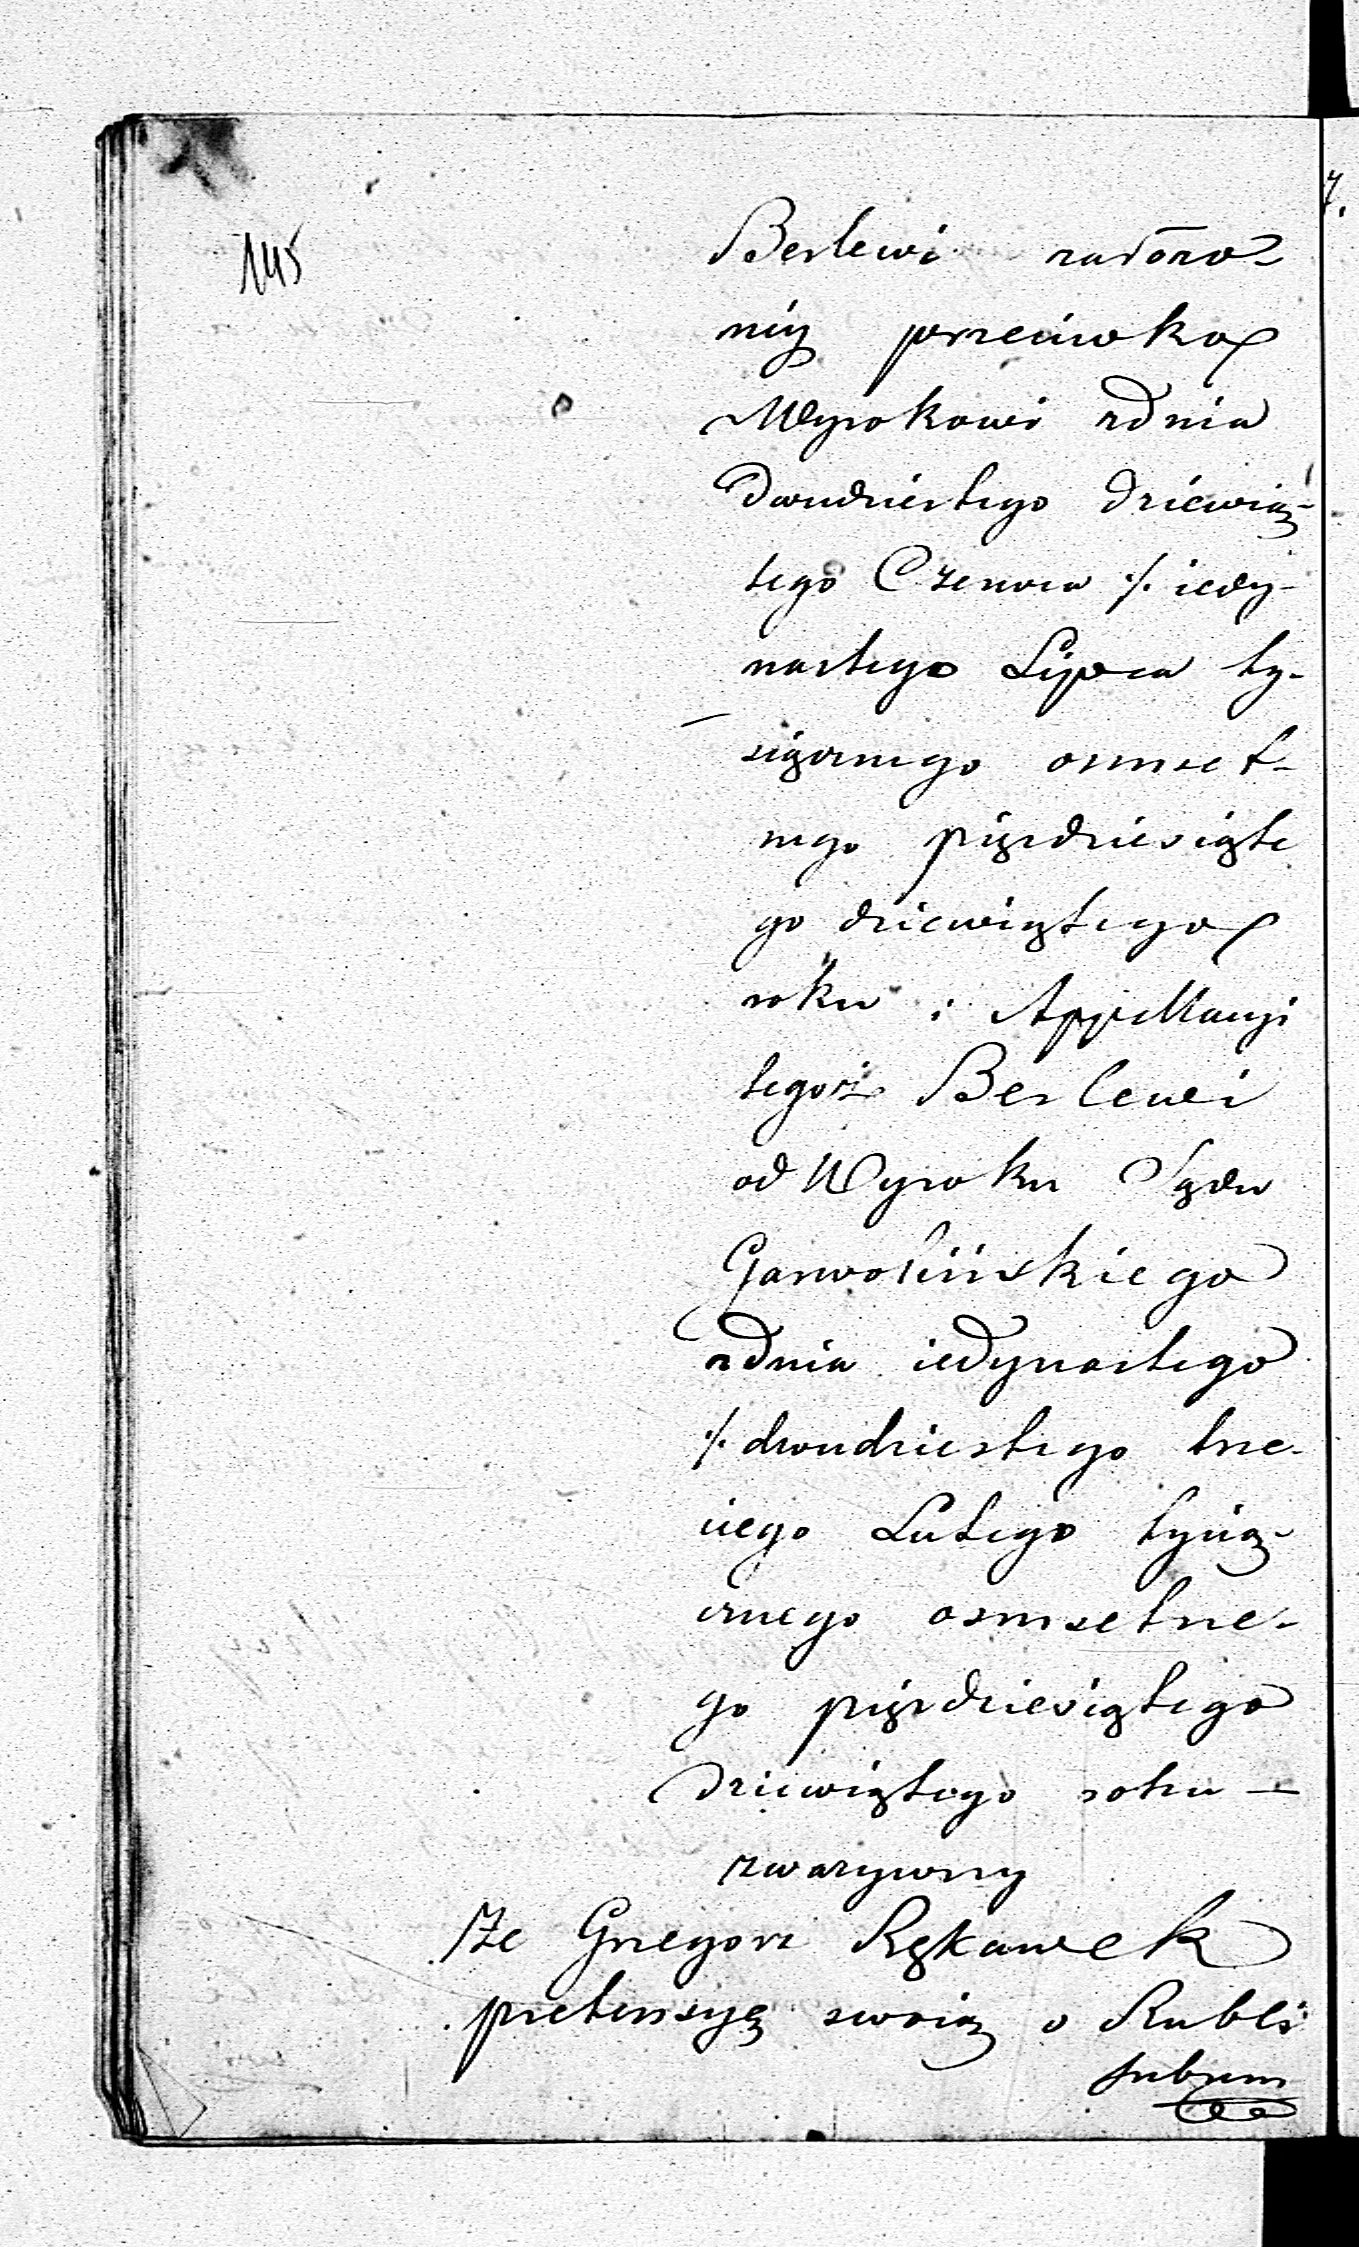 145
Berlewi założo-
néy przeciwko
Wyrokowi zdnia
Dwudziestego dziewią-
tego Czerwca ·/. iedy-
nastego Lipca ty-
siącznego osmset-
nego pięćdziesiąte
go dziewiątego
roku i Appellacyi
tegoż Berlewi
od Wyroku Sądu
Garwolińskiego
zdnia iedynastego
·/. dwudziestego trze-
ciego Lutego tysią-
cznego osmsetne-
go pięćdziesiątego
dziewiątego roku —
zważywszy
Że Grzegorz Rękawek
pretensyę swoią o Rubli
srebrem